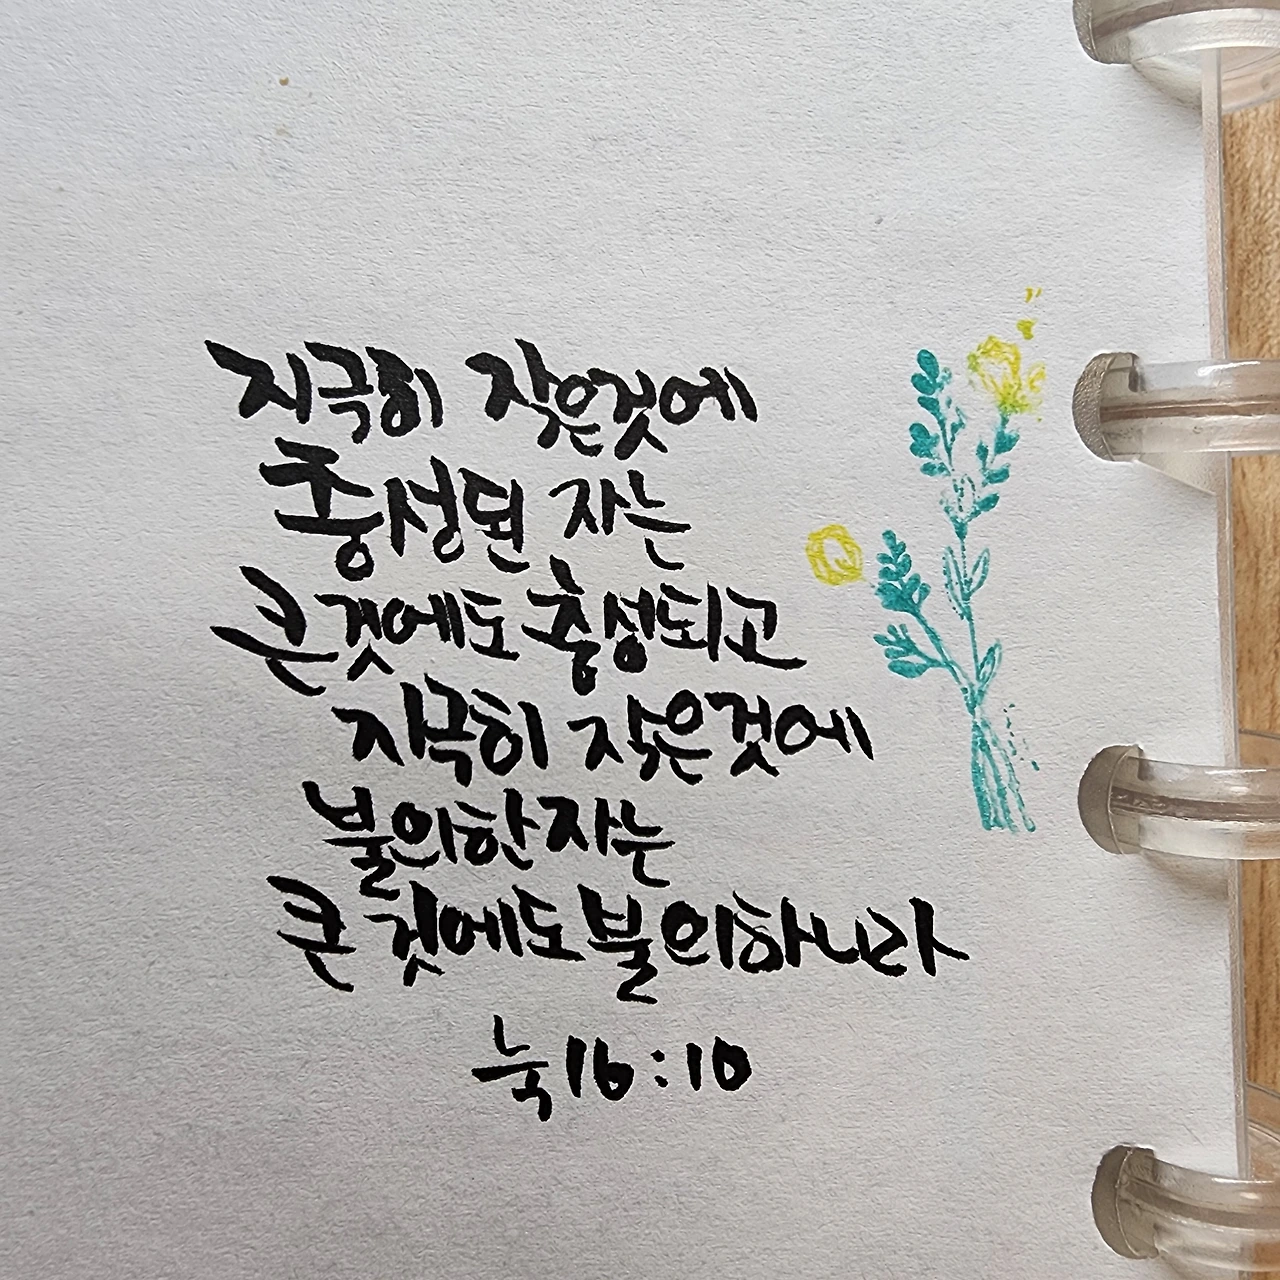 지극히 작은것에
충성된 자는
큰것에도 충성되고
지극히 작은것에
불의한 자는
큰 것에도 불의하니라
눅 16:10